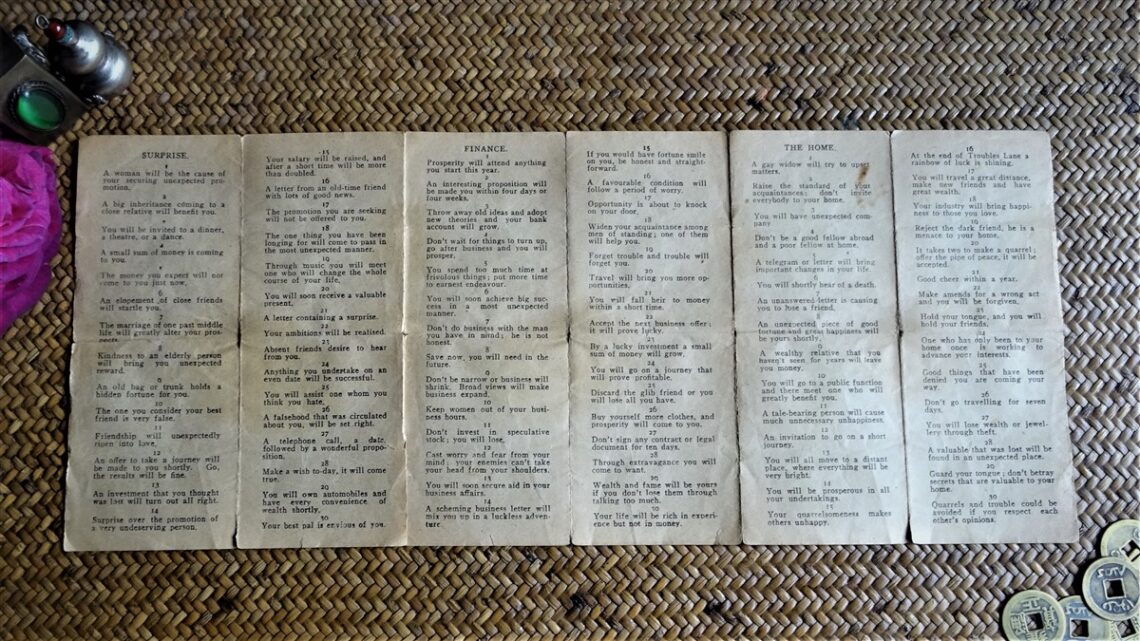 SURPRISE.
1
A woman will be the cause of
your securing unexpected pro-
motion.
2
A big inheritance coming to a
close relative will benefit you.
3
You will be invited to a dinner,
a theatre, or a dance.
4
A small sum of money is coming
to you.
5
The money you expect will not
come to you just now.
6
An elopement of close friends
will startle you.
7
The marriage of one past middle
life will greatly alter your pros-
pects.
8
Kindness to an elderly person
will bring you unexpected
reward.
9
An old bag or trunk holds a
hidden fortune for you.
10
The one you consider your best
friend is very false.
11
Friendship will unexpectedly
ripen into love.
12
An offer to take a journey will
be made to you shortly. Go,
the results will be fine.
13
An investment that you thought
was lost will turn out all right.
14
Surprise over the promotion of
a very undeserving person.
15
Your salary will be raised, and
after a short time will be more
than doubled.
16
A letter from an old-time friend
with lots of good news.
17
The promotion you are seeking
will not be offered to you.
18
The one thing you have been
longing for will come to pass in
the most unexpected manner.
19
Through music you will meet
one who will change the whole
course of your life.
20
You will soon receive a valuable
present.
21
A letter containing a surprise.
22
Your ambitions will be realised.
23
Absent friends desire to hear
from you.
24
Anything you undertake on an
even date will be successful.
25
You will assist one whom you
think you hate.
26
A falsehood that was circulated
about you, will be set right.
27
A telephone call, a date,
followed by a wonderful propo-
sition.
28
Make a wish to-day, it will come
true.
29
You will own automobiles and
have every convenience of
wealth shortly.
30
Your best pal is envious of you.
FINANCE.
1
Prosperity will attend anything
you start this year.
2
An interesting proposition will
be made you within four days or
four weeks.
3
Throw away old ideas and adopt
new theories and your bank
account will grow.
4
Don't wait for things to turn up,
go after business and you will
prosper.
5
You spend too much time at
frivolous things; put more time
to earnest endeavour.
6
You will soon achieve big suc-
cess in a most unexpected
manner.
7
Don't do business with the man
you have in mind; he is not
honest.
8
Save now, you will need in the
future.
9
Don't be narrow or business will
shrink. Broad views will make
business expand.
10
Keep women out of your busi-
ness hours.
11
Don't invest in speculative
stock; you will lose.
12
Cast worry and fear from your
mind; your enemies can't take
your head from your shoulders.
13
You will soon secure aid in your
business affairs.
14
A scheming business letter will
mix you up in a luckless adven-
ture.
15
If you would have fortune smile
on you, be honest and straight-
forward.
16
A favourable condition will
follow a period of worry.
17
Opportunity is about to knock
on your door.
18
Widen your acquaintance among
men of standing; one of them
will help you.
19
Forget trouble and trouble will
forget you.
20
Travel will bring you more op-
portunities.
21
You will fall heir to money
within a short time.
22
Accept the next business offer;
it will prove lucky.
23
By a lucky investment a small
sum of money will grow.
24
You will go on a journey that
will prove profitable.
25
Discard the glib friend or you
will lose all you have.
26
Buy yourself more clothes, and
prosperity will come to you.
27
Don't sign any contract or legal
document for ten days.
28
Through extravagance you will
come to want.
29
Wealth and fame will be yours
if you don't lose them through
talking too much.
30
Your life will be rich in experi-
ence but not in money.
THE HOME.
1
A gay widow will try to upset
matters.
2
Raise the standard of your
acquaintances; don't invite
everybody to your home.
3
You will have unexpected com-
pany.
4
Don't be a good fellow abroad
and a poor fellow at home.
5
A telegram or letter will bring
important changes in your life.
6
You will shortly hear of a death.
7
An unanswered letter is causing
you to lose a friend.
8
An unexpected piece of good
fortune and great happiness will
be yours shortly.
9
A wealthy relative that you
haven't seen for years will leave
you money.
10
You will go to a public function
and there meet one who will
greatly benefit you.
11
A tale-bearing person will cause
much unnecessary unhappiness.
12
An invitation to go on a short
journey.
13
You will all move to a distant
place, where everything will be
very bright.
14
You will be prosperous in all
your undertakings.
15
Your quarrelsomeness makes
others unhappy.
16
At the end of Troubles Lane a
rainbow of luck is shining.
17
You will travel a great distance,
make new friends and have
great wealth.
18
Your industry will bring happi-
ness to those you love.
19
Reject the dark friend, he is a
menace to your home.
20
It takes two to make a quarrel;
offer the pipe of peace, it will be
accepted.
21
Good cheer within a year.
22
Make amends for a wrong act
and you will be forgiven.
23
Hold your tongue, and you will
hold your friends.
24
One who has only been to your
home once is working to
advance your interests.
25
Good things that have been
denied you are coming your
way.
26
Don't go travelling for seven
days.
27
You will lose wealth or jewel-
lery through theft.
28
A valuable that was lost will be
found in an unexpected place.
29
Guard your tongue; don't betray
secrets that are valuable to your
home.
30
Quarrels and trouble could be
avoided if you respect each
other's opinions.